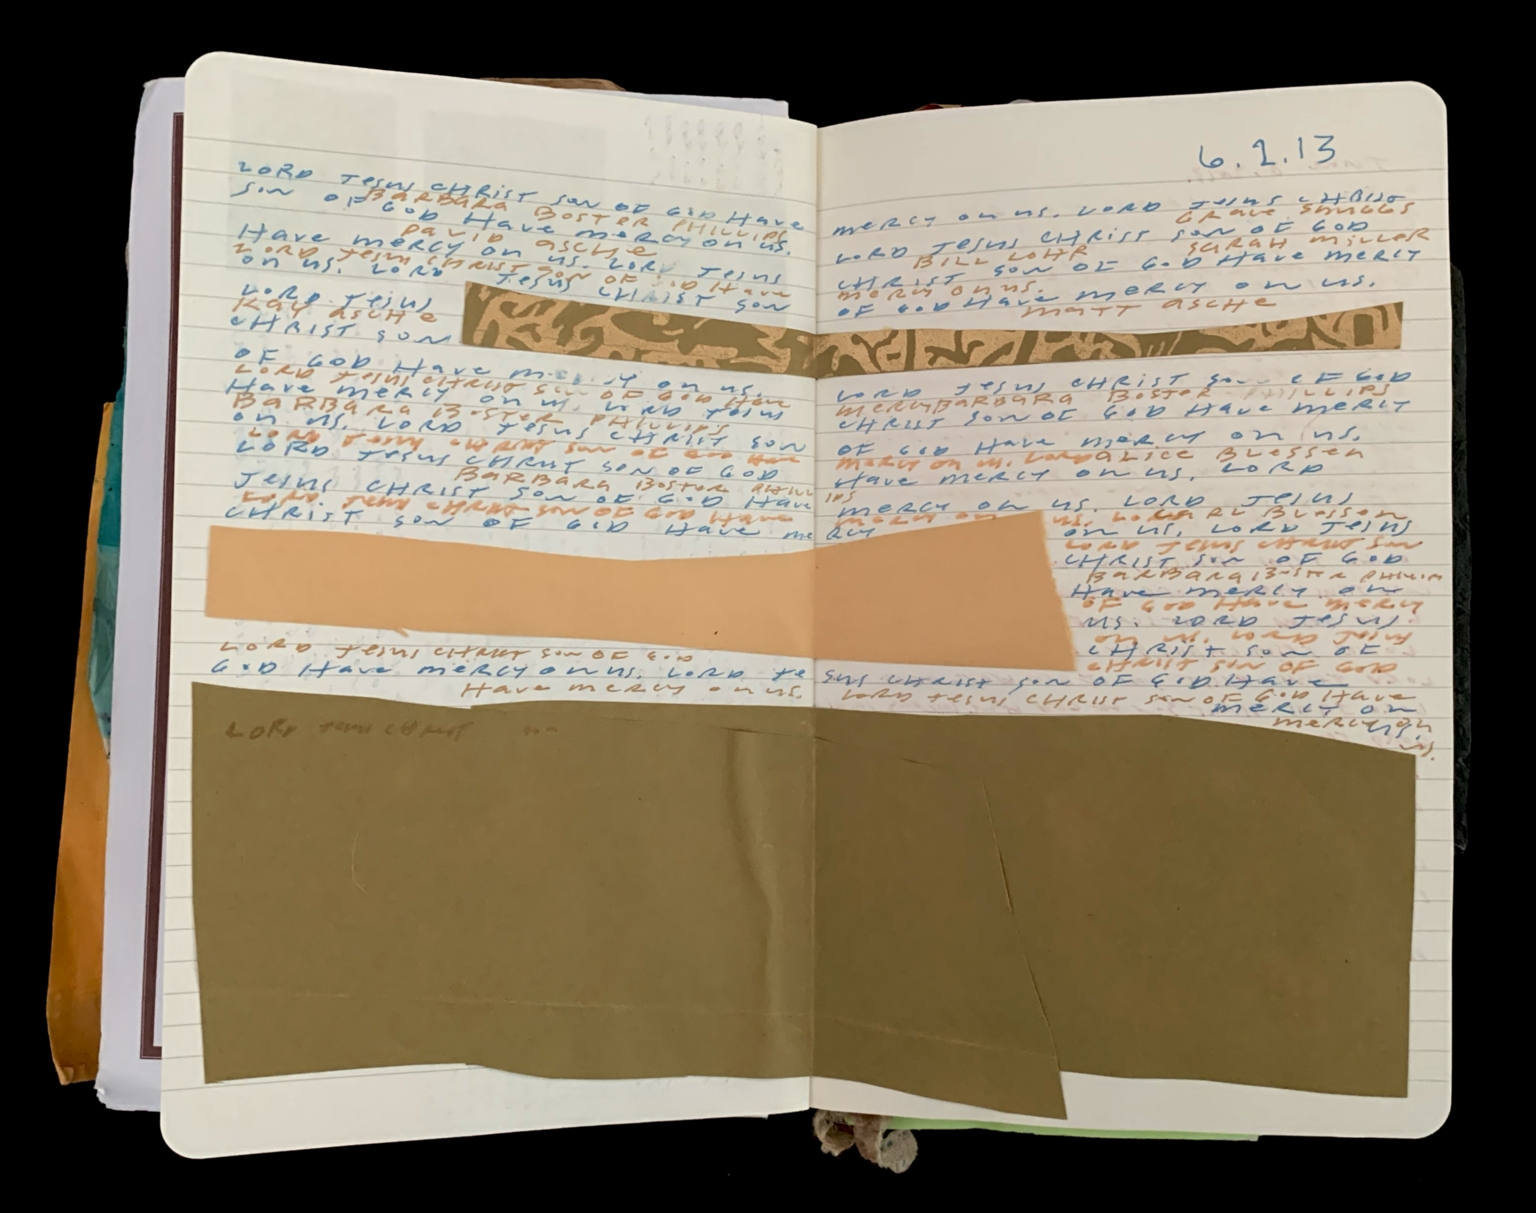 LORD JESUS CHRIST SON OF GOD HAVE
BARBARA BOSTER PHILLIPS
SON OF GOD HAVE MERCY ON US.
DAVID ASCHE
HAVE MERCY ON US. LORD JESUS
LORD JESUS CHRIST SON OF GOD HAVE
ON US. LORD JESUS CHRIST SON
LORD JESUS
KAY ASCHE
CHRIST SON
OF GOD HAVE MERCY ON US.
LORD JESUS CHRIST SON OF GOD HAVE
HAVE MERCY ON US. LORD JESUS
BARBARA BOSTER PHILLIPS
ON US. LORD JESUS CHRIST SON
LORD JESUS CHRIST SON OF GOD HAVE
LORD JESUS CHRIST SON OF GOD
BARBARA BOSTER PHILLIPS
JESUS CHRIST SON OF GOD HAVE
LORD JESUS CHRIST SON OF GOD HAVE
CHRIST SON OF GOD HAVE MERCY
LORD JESUS CHRIST SON OF GOD
GOD HAVE MERCY ON US. LORD JESUS CHRIST SON OF GOD HAVE
HAVE MERCY ON US. LORD JESUS CHRIST SON OF GOD HAVE
MERCY ON
MERCY ON
US.
US.
LORD JESUS CHRIST
6.2.13
MERCY ON US. LORD JESUS CHRIST
GRACE SHUGGS
LORD JESUS CHRIST SON OF GOD
BILL LOHR SARAH MILLER
CHRIST SON OF GOD HAVE MERCY
MERCY ON US.
OF GOD HAVE MERCY ON US.
MATT ASCHE
LORD JESUS CHRIST SON OF GOD
MERCY BARBARA BOSTER PHILLIPS
CHRIST SON OF GOD HAVE MERCY
OF GOD HAVE MERCY ON US.
MERCY ON US. LORD ALICE BLESSEN
HAVE MERCY ON US. LORD
MERCY ON US. LORD JESUS
MERCY ON US. LORD BLESSEN
ON US. LORD JESUS
LORD JESUS CHRIST SON
CHRIST SON OF GOD
BARBARA BOSTER PHILLIPS
HAVE MERCY ON
OF GOD HAVE MERCY
US. LORD JESUS
ON US. LORD JESUS
CHRIST SON OF
CHRIST SON OF GOD